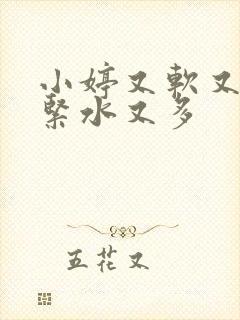 小婷又軟又
緊水又多
五花又